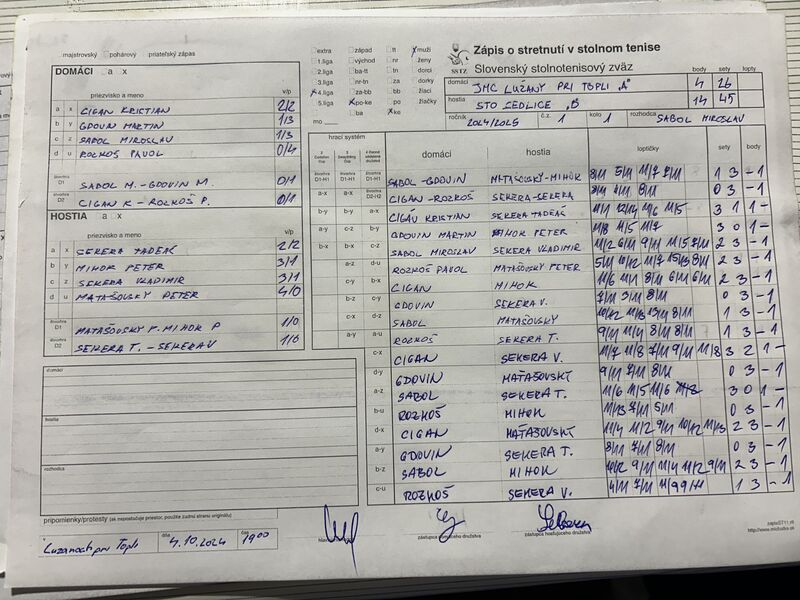 majstrovský pohárový priateľský zápas
extra západ tt muži
1.liga východ nr ženy
2.liga ba-tt tn dorci
3.liga nr-tn za dorky
4.liga za-bb bb žiaci
5.liga po-ke po žiačky
ba ke
mo
SSTZ
Zápis o stretnutí v stolnom tenise
Slovenský stolnotenisový zväz
body sety lopty
domáci JMC LUŽANY PRI TOPLI "A" 4 26
hostia STO SEDLICE "B" 14 45
ročník 2024/2025 č.z. 1 kolo 1 rozhodca SABOL MIROSLAV
DOMÁCI a x
priezvisko a meno v/p
a x CIGAN KRISTIAN 2/2
b y GDOVIN MARTIN 1/3
c z SABOL MIROSLAV 1/3
d u ROZKOŠ PAVOL 0/4
štvorhra D1 SABOL M.-GDOVIN M. 0/1
štvorhra D2 CIGAN K - ROZKOŠ P. 0/1
HOSTIA a x
priezvisko a meno v/p
a x SEKERA TADEÁŠ 2/2
b y MIHOK PETER 3/1
c z SEKERA VLADIMIR 3/1
d u MATAŠOVSKÝ PETER 4/0
štvorhra D1 MATAŠOVSKÝ P. MIHOK P 1/0
štvorhra D2 SEKERA T. - SEKERA V 1/0
domáci
hostia
rozhodca
pripomienky/protesty (ak nepostačuje priestor, použite zadnú stranu originálu)
hrací systém domáci hostia loptičky sety body
D1-H1 D1-H1 SABOL - GDOVIN MATAŠOVSKÝ-MIHOK 8/11 5/11 11/7 7/11 1 3 - 1
a-x D2-H2 CIGAN - ROZKOŠ SEKERA-SEKERA 8/11 4/11 8/11 0 3 - 1
b-y b-y a-x CIGAN KRISTIAN SEKERA TADEÁŠ 11/1 12/14 11/6 11/5 3 1 1 -
a-y c-z b-y GDOVIN MARTIN MIHOK PETER 11/8 11/5 11/7 3 0 1 -
b-x b-x c-z SABOL MIROSLAV SEKERA VLADIMIR 11/2 6/11 9/11 11/5 7/11 2 3 - 1
a-z d-u ROZKOŠ PAVOL MATAŠOVSKY PETER 5/11 10/12 11/7 15/13 8/11 2 3 - 1
c-y b-x CIGAN MIHOK 11/6 11/1 8/11 6/11 6/11 2 3 - 1
b-z c-y GDOVIN SEKERA V. 7/11 3/11 8/11 0 3 - 1
c-x d-z SABOL MATAŠOVSKY 10/12 11/13 13/11 8/11 1 3 - 1
a-y a-u ROZKOŠ SEKERA T. 9/11 11/4 8/11 8/11 1 3 - 1
c-x CIGAN SEKERA V. 11/7 11/8 7/11 9/11 11/8 3 2 1 -
d-y GDOVIN MAŤAŠOVSKÝ 9/11 7/11 8/11 0 3 - 1
a-z SABOL SEKERA T. 11/6 11/5 11/6 3 0 1 -
b-u ROZKOŠ MIHOK 11/13 7/11 5/11 0 3 - 1
d-x CIGAN MAŤAŠOVSKÝ 11/4 11/2 9/11 10/12 11/13 2 3 - 1
a-y GDOVIN SEKERA T. 8/11 7/11 8/11 0 3 - 1
b-z SABOL MIHOK 10/12 9/11 11/4 11/2 9/11 2 3 - 1
c-u ROZKOŠ SEKERA V. 4/11 7/11 11/9 9/11 1 3 - 1
dňa 4.10.2024 čas 19 00
zástupca domáceho družstva
zástupca hosťujúceho družstva